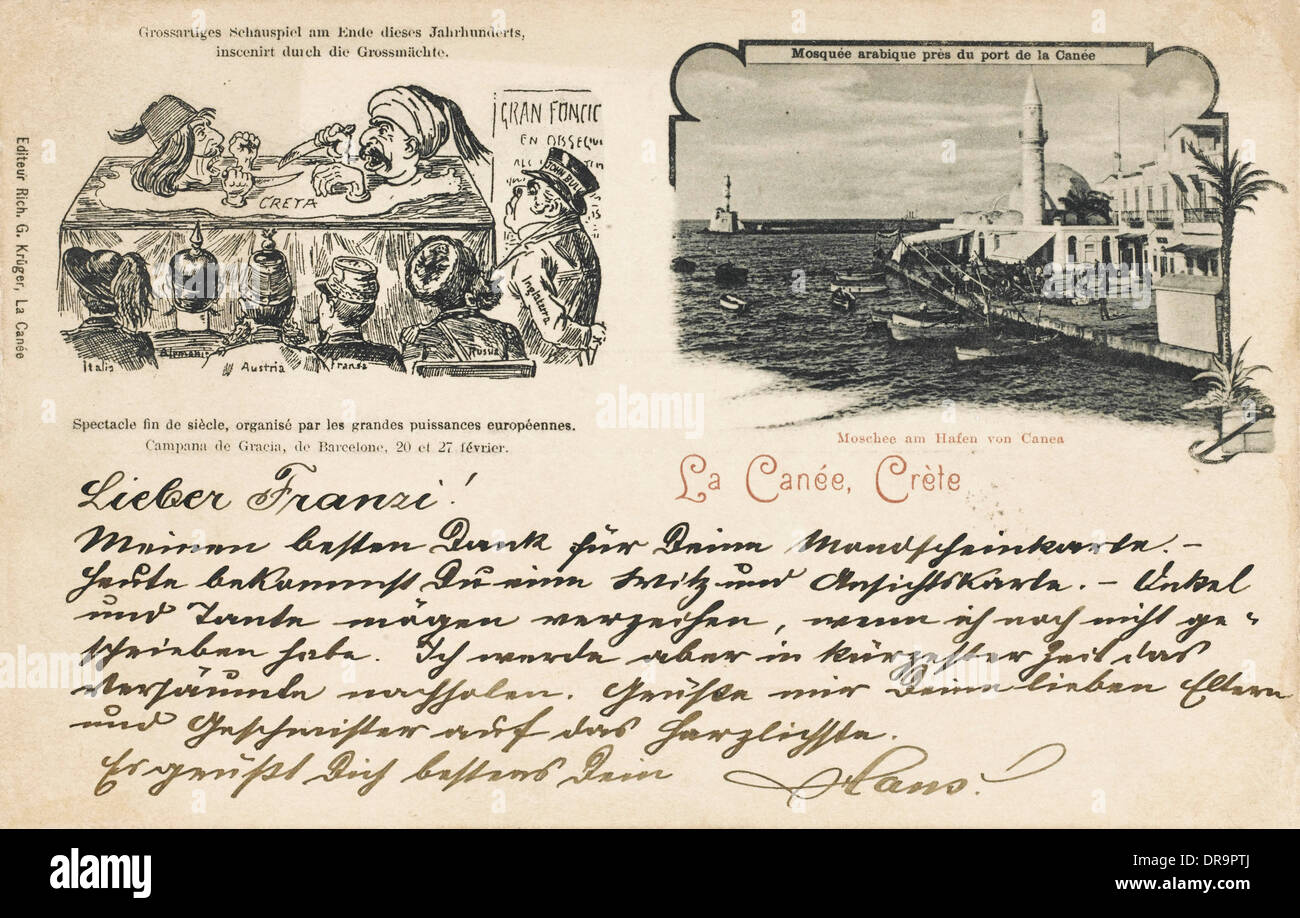 Grossartiges Schauspiel am Ende dieses Jahrhunderts,
inscenirt durch die Grossmächte.
GRAN FONCIO
EN OBSEQUI
JOHN BULL
CRETA
Inglaterra
Italia
Alemani
Austria
Fransa
Rusia
Editeur Rich. G. Krüger, La Canée
Spectacle fin de siècle, organisé par les grandes puissances européennes.
Campana de Gracia, de Barcelone, 20 et 27 février.
Mosquée arabique près du port de la Canée
Moschee am Hafen von Canea
La Canée, Crète
Lieber Franzi!
Meinen besten Dank für Deine Mondscheinkarte. –
Heute bekommst Du eine Witz und Ansichtskarte. – Onkel
und Tante mögen verzeihen, wenn ich noch nicht ge=
schrieben habe. Ich werde aber in kürzester Zeit das
Versäumte nachholen. Grüße mir Deine lieben Eltern
und Geschwister auf das Herzlichste.
Es grüßt Dich bestens Dein Hans!
alamy
alamy
Image ID: DR9PTJ
www.alamy.com